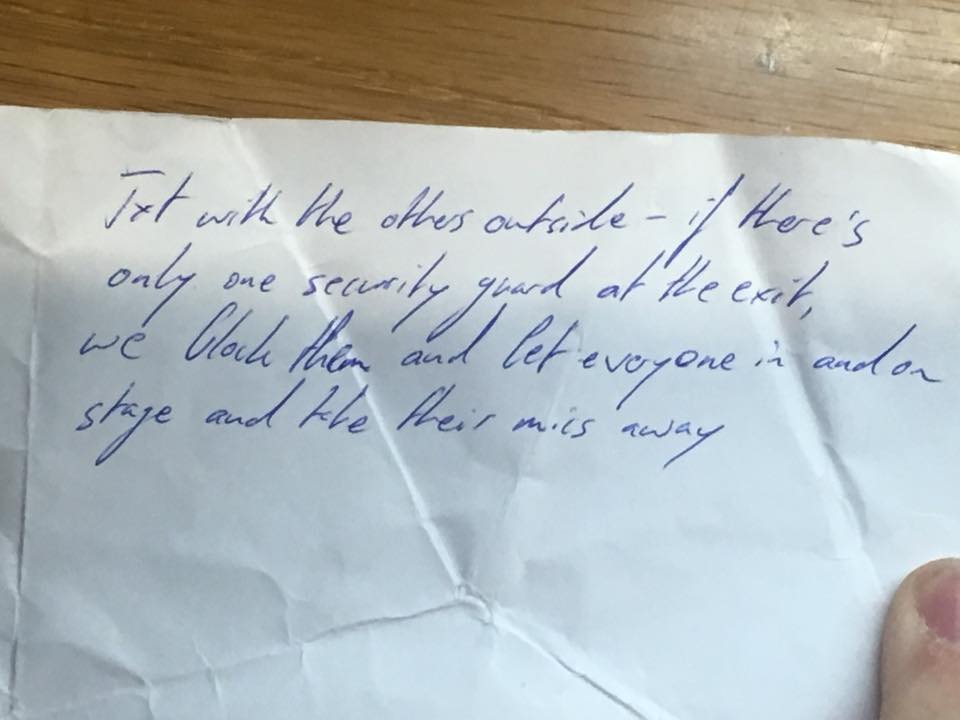 Txt with the others outside - if there's
only one security guard at the exit,
we block them and let everyone in and on
stage and take their mics away